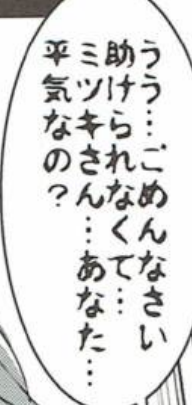 うう…ごめんなさい
助けられなくて…
ミツキさん…あなた…
平気なの？